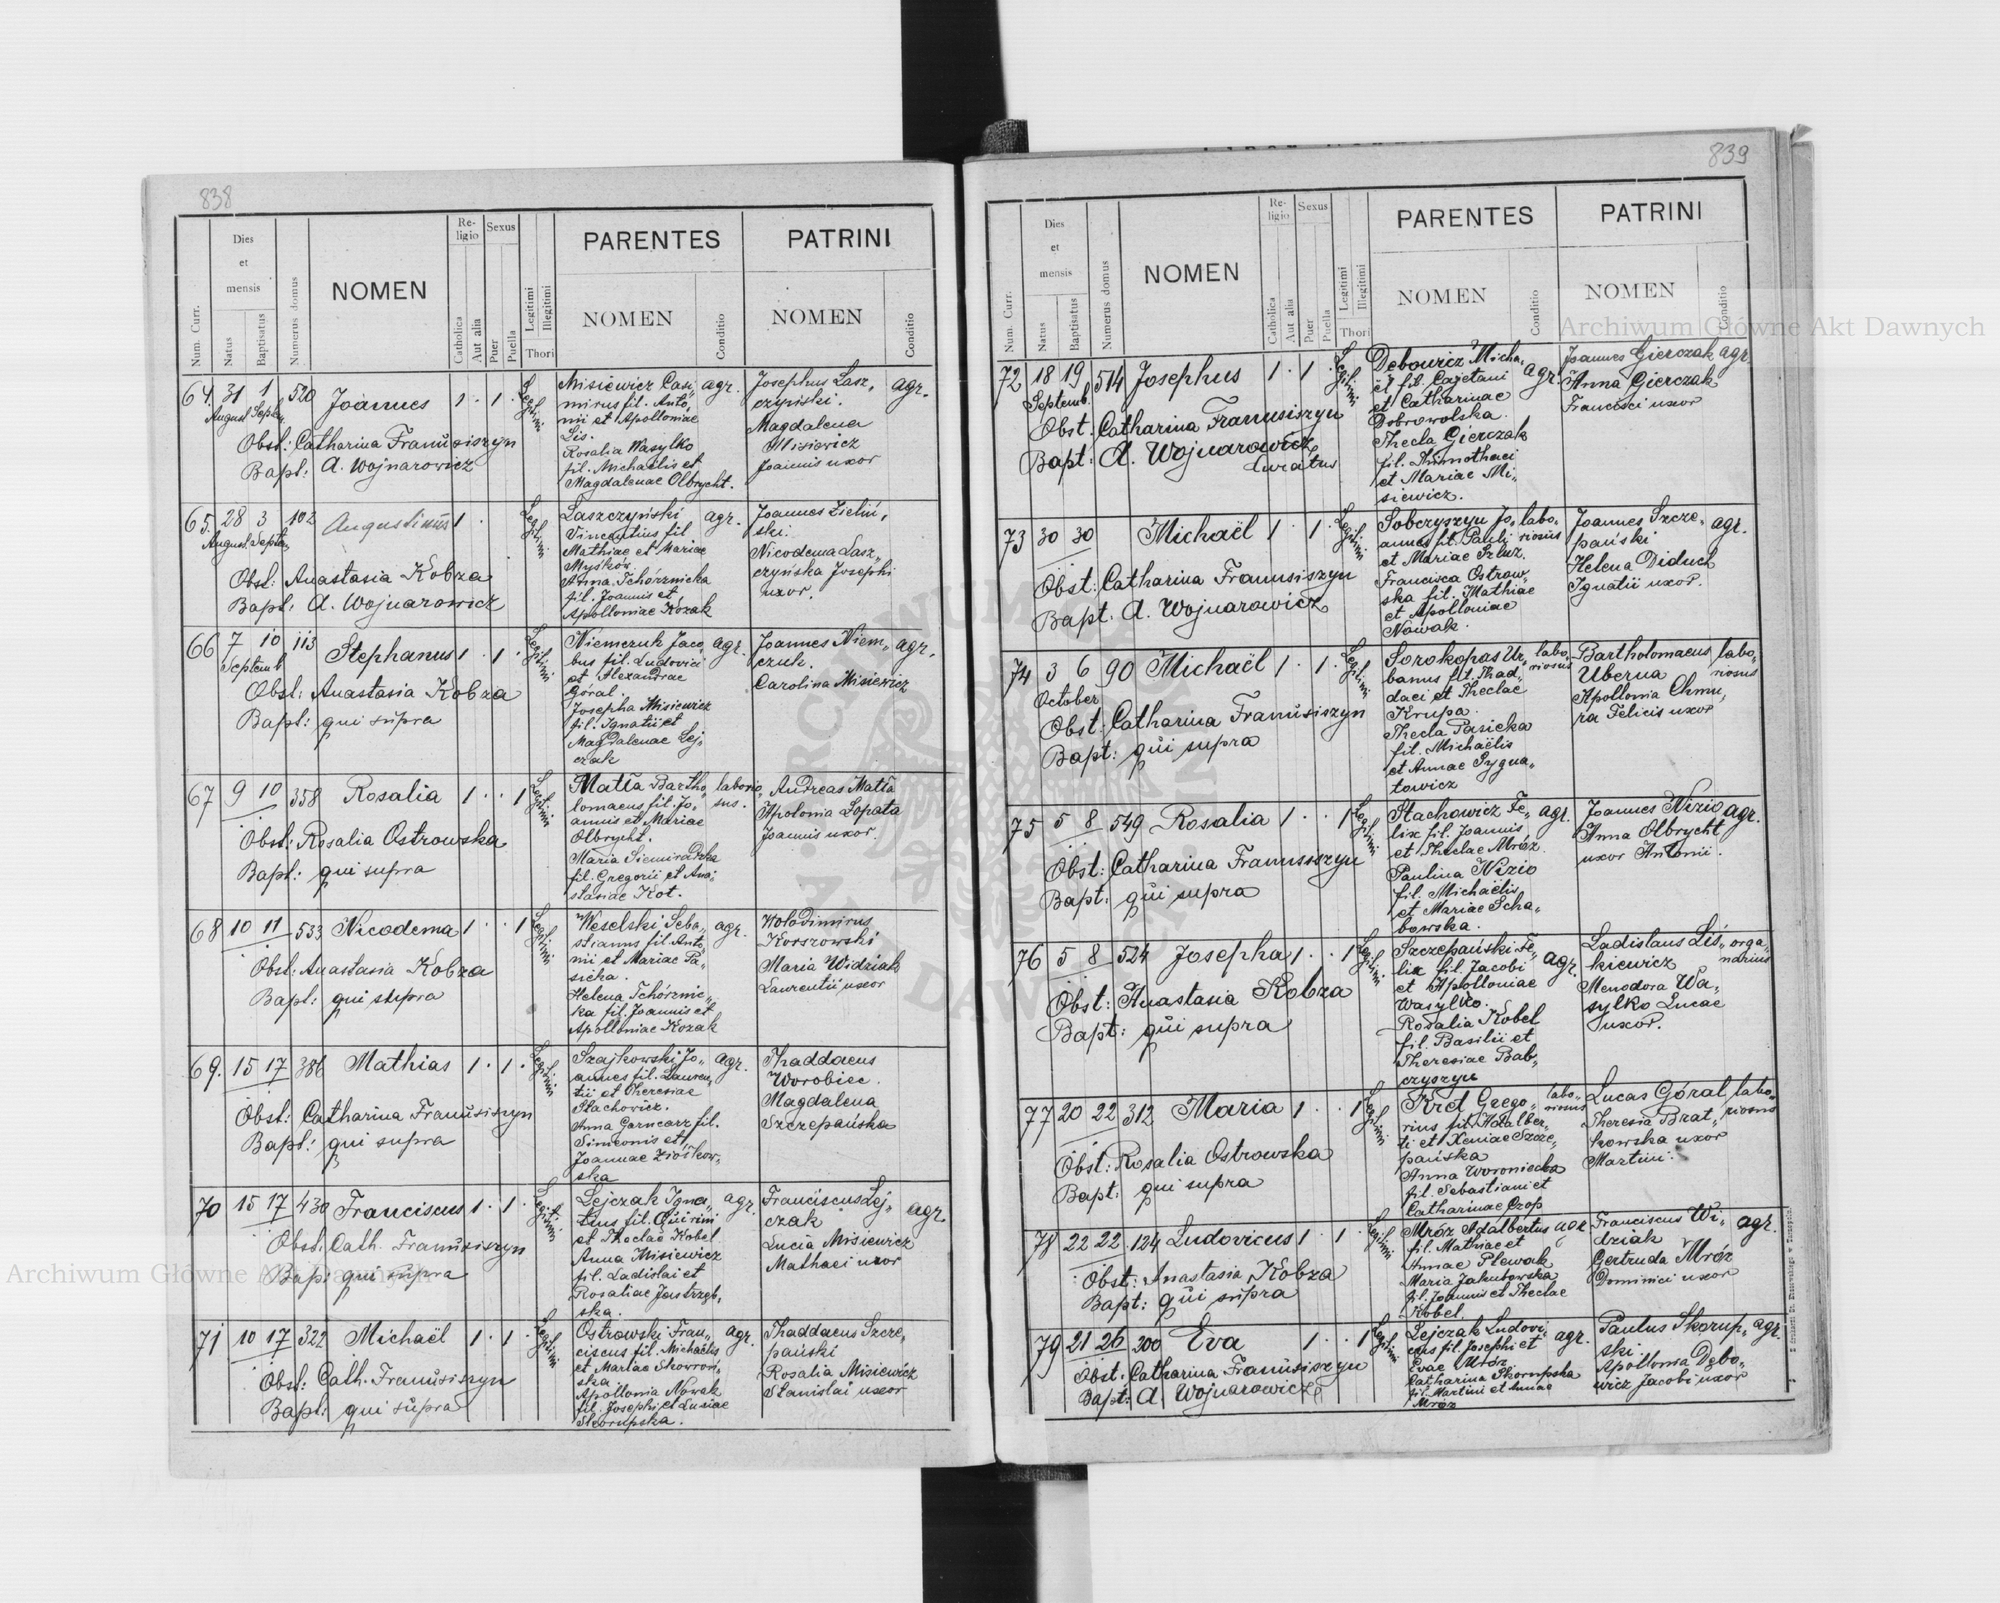 838
Num. Curr.
Dies et mensis
Natus
Baptisatus
Numerus domus
NOMEN
Religio
Catholica
Aut alia
Sexus
Puer
Puella
Legitimi
Illegitimi
Thori
PARENTES
NOMEN
Conditio
PATRINI
NOMEN
Conditio
64. 31 1 520 Joannes 1 · 1 · Legitimi
August. Septem.
Obst: Catharina Franusiszyn
Bapt: A. Wojnarowicz
Misiewicz Casi„ agr.
mirus fil. Anto„
nii et Apolloniae
Lis.
Rosalia Wasylko
fil. Michaëlis et
Magdalenae Olbrycht.
Josephus Lasz„ agr.
czyński.
Magdalena
Misiewicz
Joannis uxor
65. 28 3 102 Augustinus 1 · Legitimi
August. Septem.
Obst: Anastasia Kobza
Bapt: A. Wojnarowicz
Laszczyński agr.
Vincentius fil
Mathiae et Mariae
Myśków
Anna Tchórznicka
fil. Joannis et
Apolloniae Kozak
Joannes Zieliń„
ski.
Nicodema Lasz„
czyńska Josephi
uxor.
66 7 10 113 Stephanus 1 · 1 · Legitimi
Septemb.
Obst: Anastasia Kobza
Bapt: qui supra
Niemczuk Jaco„ agr.
bus fil. Ludovici
et Alexandrae
Góral.
Josepha Misiewicz
fil. Ignatii et
Magdalenae Lej„
czak
Joannes Niem„ agr.
czuk.
Carolina Misiewicz
67 9 10 358 Rosalia 1 · · 1 Legitimi
Obst: Rosalia Ostrowska
Bapt: qui supra
Matła Bartho„ laborio„
lomaeus fil. Jo„ sus.
annis et Mariae
Olbrycht.
Maria Siemiradzka
fil. Gregorii et Ana„
stasiae Kot.
Andreas Matła
Apolonia Lopata
Joannis uxor
68 10 11 533 Nicodema 1 · · 1 Legitimi
Obst: Anastasia Kobza
Bapt: qui supra
Weselski Seba„ agr.
stianus fil. Anto„
nii et Mariae Pa„
sicka.
Helena Tchórznic„
ka fil. Joannis et
Apolloniae Kozak
Wołodimirus
Korszowski
Maria Widziak
Laurentii uxor
69. 15 17 386 Mathias 1 · 1 · Legitimi
Obst: Catharina Franusiszyn
Bapt: qui supra
Szajkowski Jo„ agr.
annes fil. Lauren„
tii et Theresiae
Stachowicz.
Anna Garncarz fil.
Simeonis et
Joannae Ziółkow„
ska
Thaddaeus
Worobiec.
Magdalena
Szczepańska
70 15 17 430 Franciscus 1 · 1 · Legitimi
Obst. Cath. Franusiszyn
Bap: qui supra
Lejczak Igna„ agr.
tius fil. Quirini
et Theclae Kobel
Anna Misiewicz
fil. Ladislai et
Rosaliae Jastrzęb„
ska.
Franciscus Lej„ agr.
czak
Lucia Misiewicz
Mathaei uxor
71 10 17 322 Michaël 1 · 1 · Legitimi
Obst: Cath. Franusiszyn
Bapt: qui supra
Ostrowski Fran„ agr.
ciscus fil. Michaëlis
et Mariae Skowroń„
ska
Apollonia Nowak
fil. Josephi et Lusiae
Skorupska.
Thaddaeus Szcze„
pański
Rosalia Misiewicz
Stanislai uxor
839
Num. Curr.
Dies et mensis
Natus
Baptisatus
Numerus domus
NOMEN
Religio
Catholica
Aut alia
Sexus
Puer
Puella
Legitimi
Illegitimi
Thori
PARENTES
NOMEN
Conditio
PATRINI
NOMEN
Conditio
72 18 19 514 Josephus 1 · 1 · Legitimi
Septemb.
Obst. Catharina Franusiszyn
Bapt: A. Wojnarowicz
curatus
Debowicz Micha„ agr.
ël fil. Cajetani
et Catharinae
Dobrowolska.
Thecla Gierczak
fil. Thimothaei
et Mariae Mi„
siewicz.
Joannes Gierczak agr.
Anna Gierczak
Francisci uxor
73 30 30 Michaël 1 · 1 · Legitimi
Obst: Catharina Franusiszyn
Bapt. A. Wojnarowicz
Sobczyszyn Jo„ labo„
annes fil. Pauli riosus
et Mariae Szluz.
Francisca Ostrow„
ska fil. Mathiae
et Apolloniae
Nowak.
Joannes Szcze„ agr.
pański
Helena Diduch
Ignatii uxor.
74 3 6 90 Michaël 1 · 1 · Legitimi
October
Obst. Catharina Franusiszyn
Bapt: qui supra
Sorokopas Ur„ labo„
banus fil. Thad„ riosus
daei et Theclae
Krupa.
Thecla Pasicka
fil. Michaëlis
et Annae Sygna„
towicz
Bartholomaeus labo„
Uberna riosus
Apollonia Chmu„
ra Felicis uxor
75 5 8 549 Rosalia 1 · · 1 Legitimi
Obst: Catharina Franusiszyn
Bapt: qui supra
Stachowicz Fe„ agr.
lix fil. Joannis
et Theclae Mróz.
Paulina Nizio
fil. Michaëlis
et Mariae Scha„
bowska.
Joannes Nizio agr.
Anna Olbrycht
uxor Antonii.
76 5 8 524 Josepha 1 · · 1 Legitimi
Obst: Anastasia Kobza
Bapt: qui supra
Szczepański Fe„ agr.
lix fil. Jacobi
et Apolloniae
Wasylko.
Rosalia Kobel
fil. Basilii et
Theresiae Bab„
czyszyn
Ladislaus Liś„ orga„
kiewicz narius
Menodora Wa„
sylko Lucae
uxor.
77 20 22 312 Maria 1 · · 1 Legitimi
Obst: Rosalia Ostrowska
Bapt: qui supra
Kret Grego„ labo„
rius fil. Adalber„ riosus
ti et Xeniae Szcze„
pańska
Anna Woroniecka
fil. Sebastiani et
Catharinae Czop
Lucas Góral labo„
Theresia Brat„ riosus
kowska uxor
Martini.
78 22 22 124 Ludovicus 1 · 1 · Legitimi
Obst: Anastasia Kobza
Bapt: qui supra
Mróz Adalbertus agr
fil. Mathiae et
Annae Plewak
Maria Jakubowska
fil. Joannis et Theclae
Kobel.
Franciscus Wi„ agr.
dziak
Gertruda Mróz
Dominici uxor
79 21 26 200 Eva 1 · · 1 Legitimi
Obst. Catharina Franusiszyn
Bapt: A. Wojnarowicz
Lejczak Ludovi„ agr.
cus fil. Josephi et
Evae Mróz
Catharina Skorupska
fil. Martini et Annae
Mróz
Paulus Skorup„ agr.
ski.
Apollonia Dębo„
wicz Jacobi uxor
Archiwum Główne Akt Dawnych
Archiwum Główne Akt Dawnych